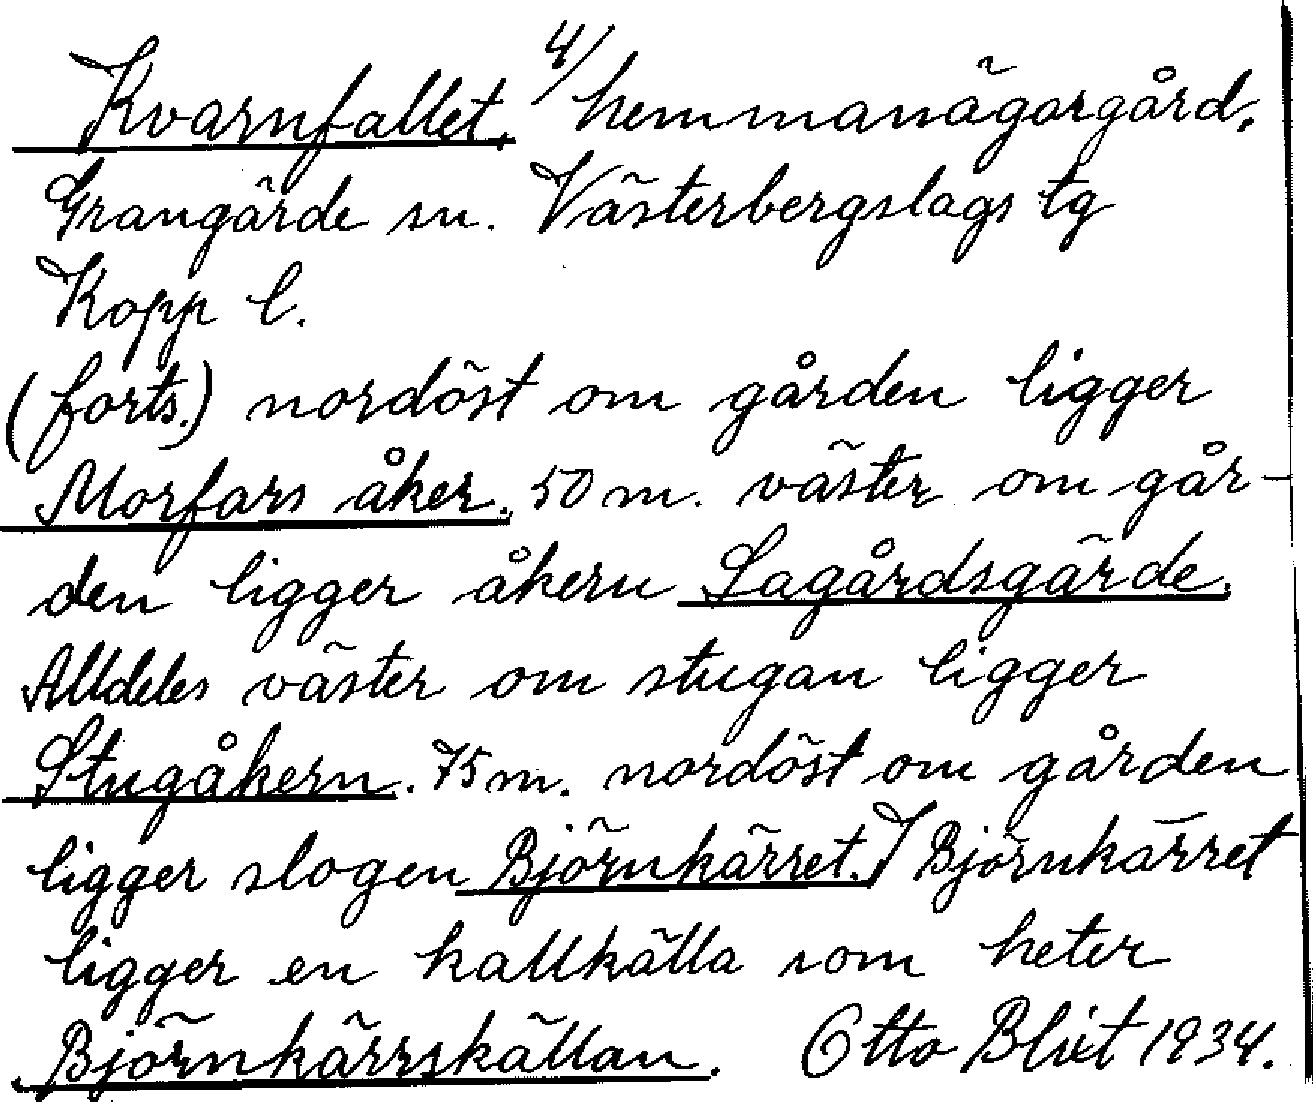 Kvarnfallet. 4/ hemmanägorgård.
Grangärde sn. Västerbergslags tg
Kopp l.
(forts.) nordöst om gården ligger
Morfars åker. 50 m. väster om går-
den ligger åkern Lagårdsgärde.
Alldeles väster om stugan ligger
Stugåkern. 75 m. nordöst om gården
ligger slogen Björnkärret. I Björnkärret
ligger en kallkälla som heter
Björnkärrskällan. Otto Blixt 1934.